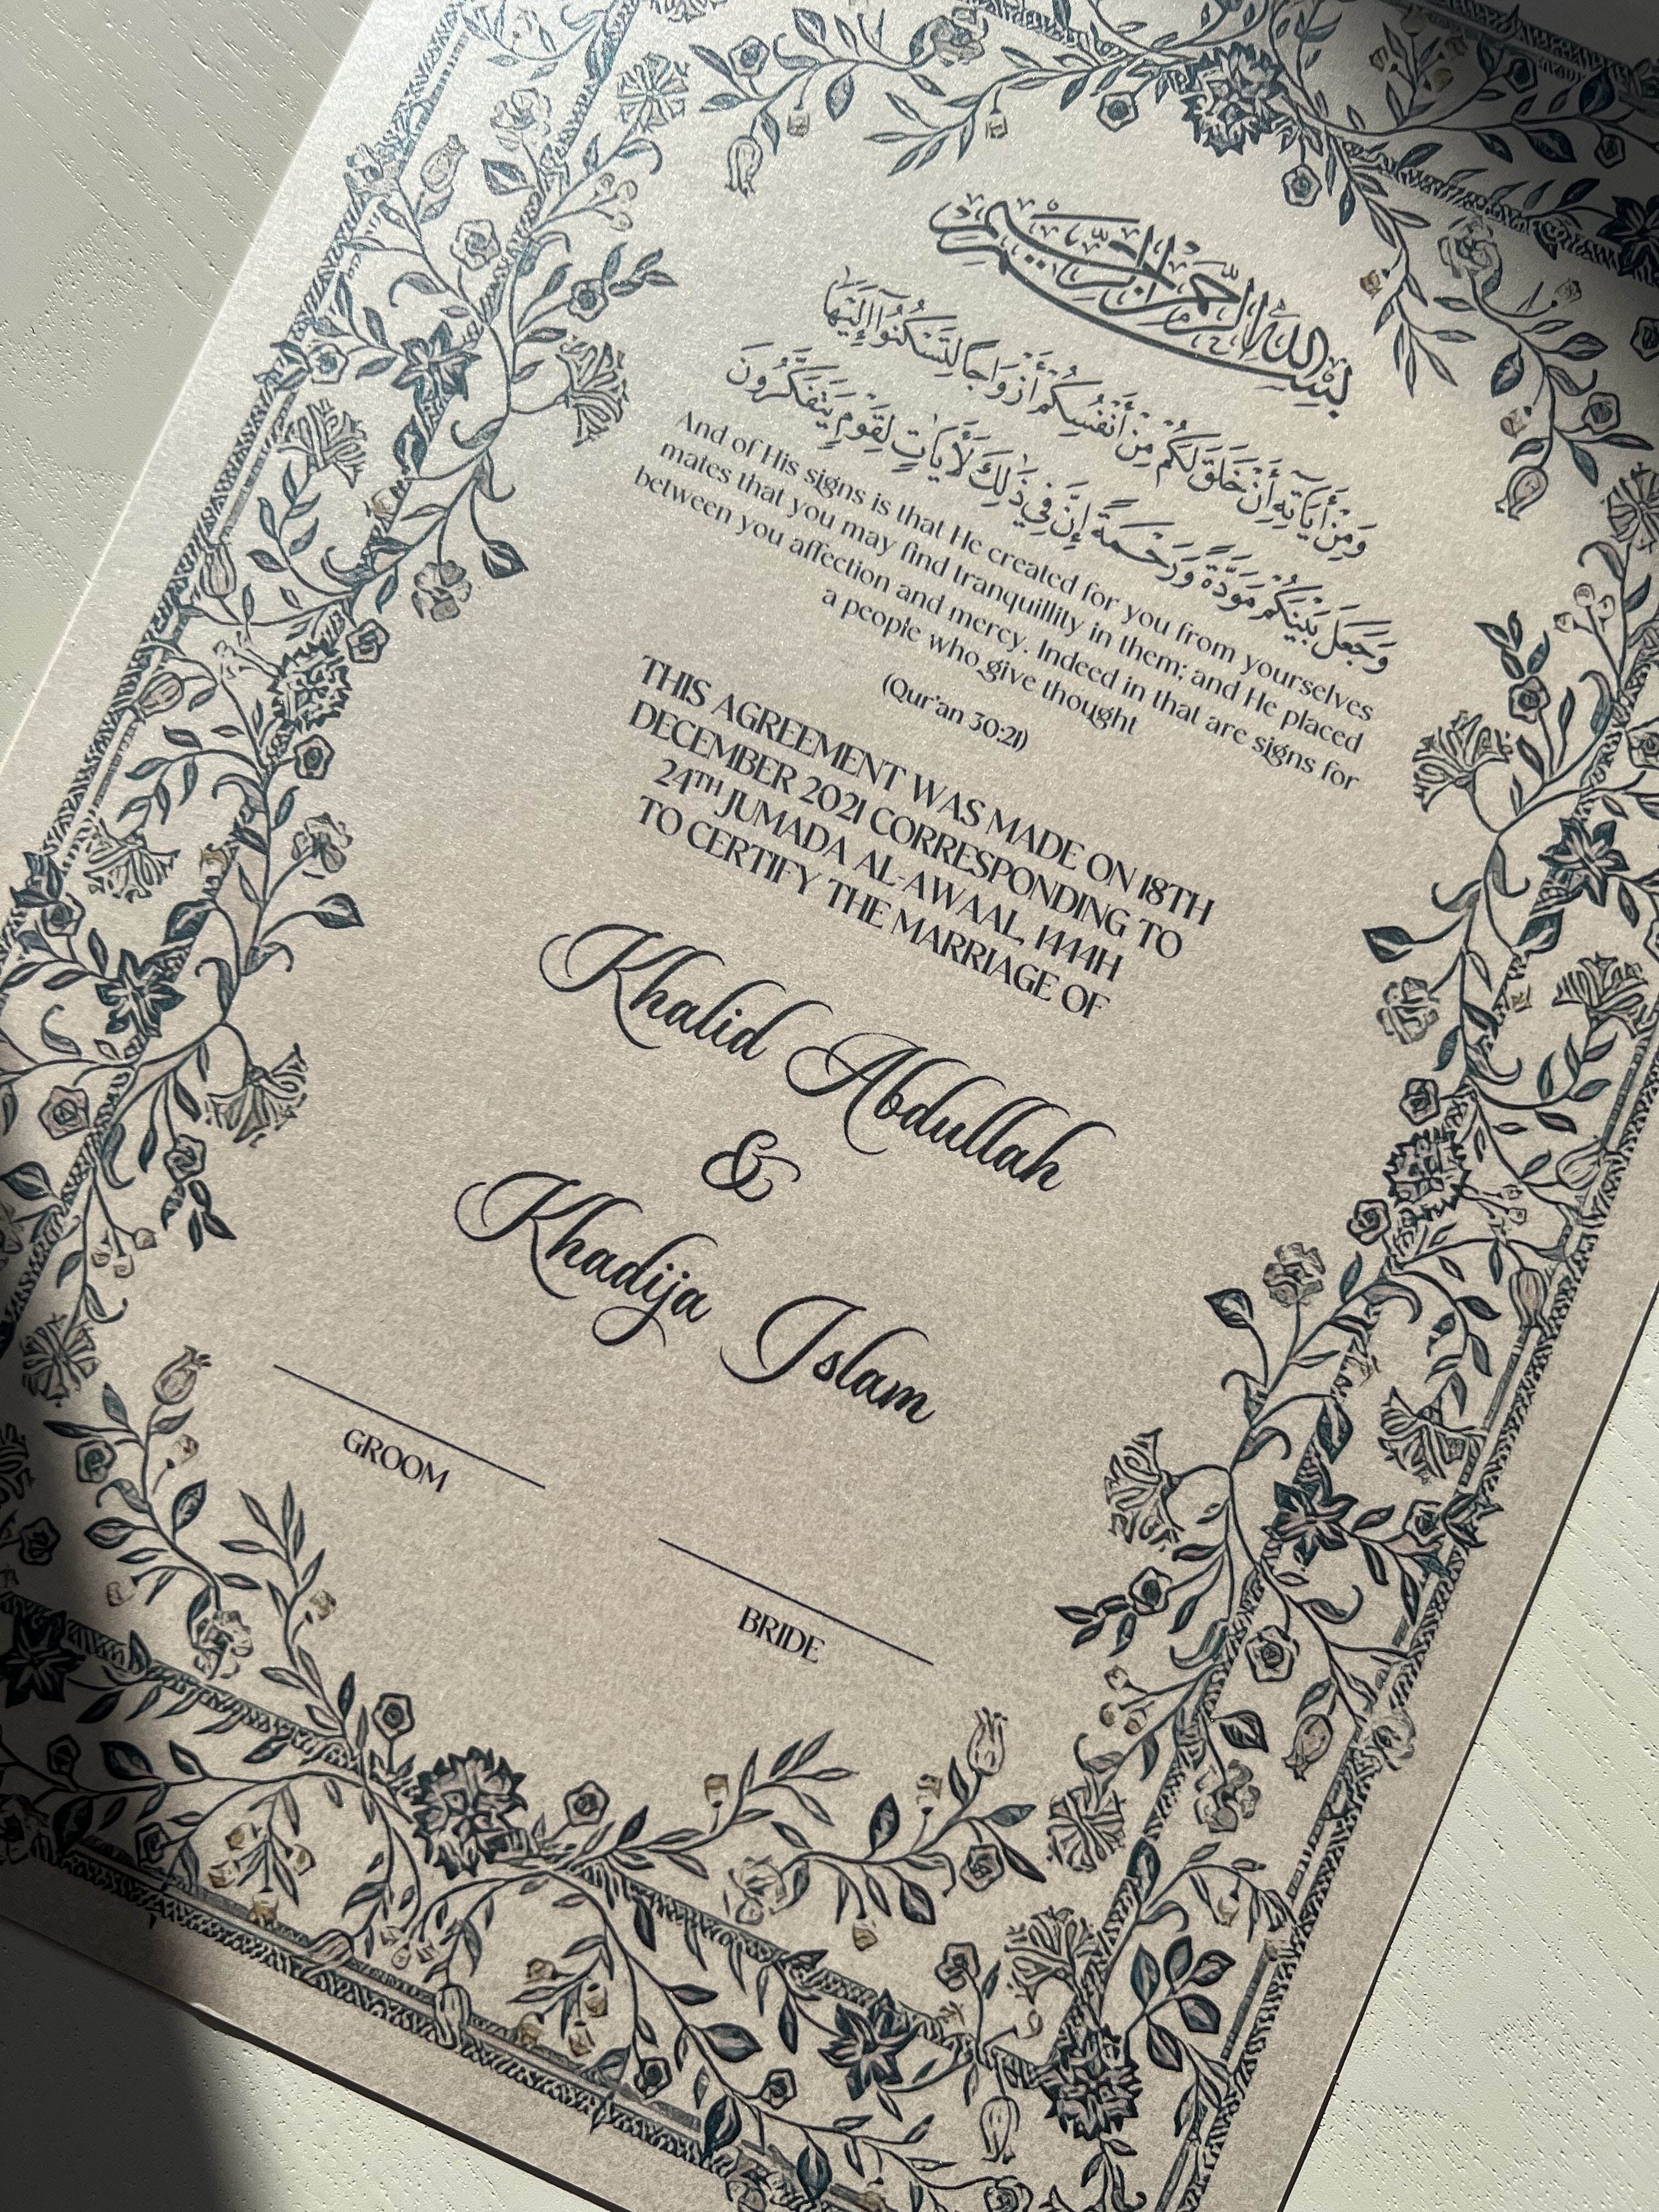 بسم الله الرحمن الرحيم
وَمِنْ أَيَاتِهِ أَنْ خَلَقَ لَكُم مِنْ أَنْفُسِكُمْ أَزْوَاجًا لِتَسْكُنُوا إِلَيْهَا
وَجَعَلَ بَيْنَكُمْ مَوَدَّةً وَرَحْمَةً إِنَّ فِي ذَٰلِكَ لَأَيَاتٍ لِقَوْمٍ يَتَفَكَّرُونَ
And of His signs is that He created for you from yourselves
mates that you may find tranquillity in them; and He placed
between you affection and mercy. Indeed in that are signs for
a people who give thought
(Qur'an 30:21)
THIS AGREEMENT WAS MADE ON 18TH
DECEMBER 2021 CORRESPONDING TO
24TH JUMADA AL-AWAAL, 1444H
TO CERTIFY THE MARRIAGE OF
Khalid Abdullah
&
Khadija Islam
GROOM
BRIDE